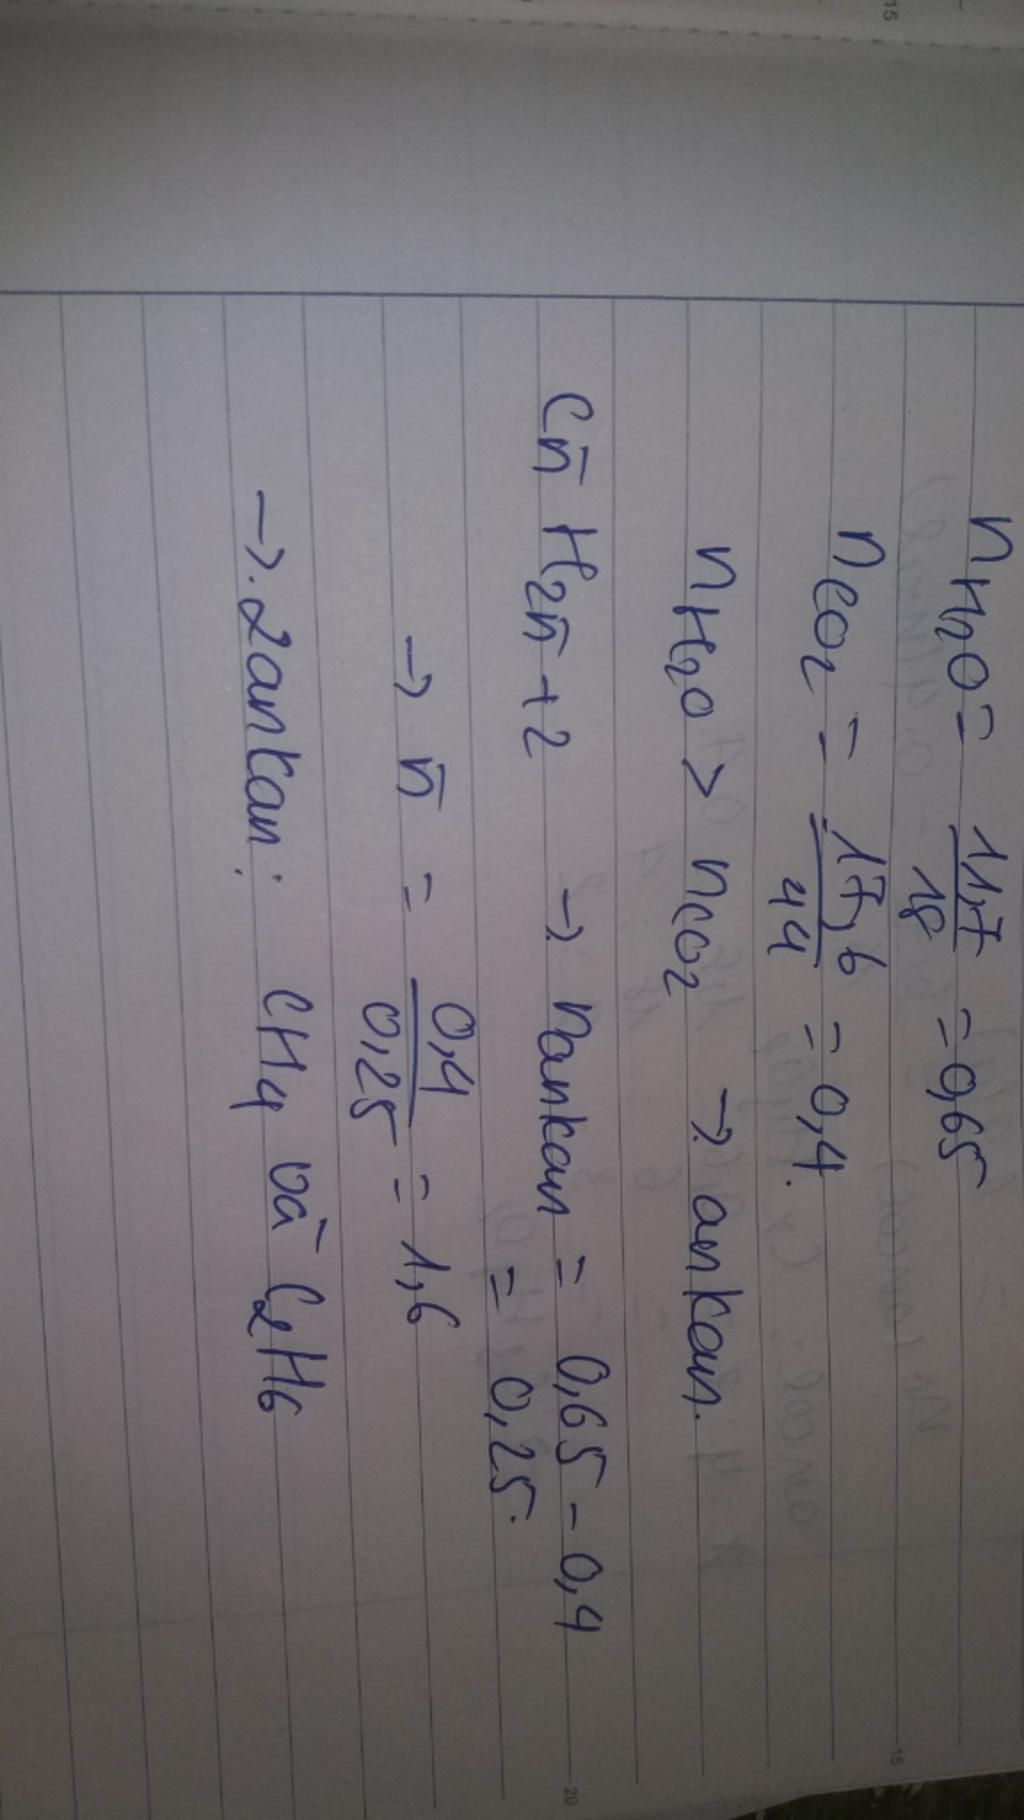 nH₂O = 11,7/18 = 0,65
nCO₂ = 17,6/44 = 0,4.
nH₂O > nCO₂ → ankan.
Cn̄ H2n̄+2 → nankan = 0,65 - 0,4
= 0,25.
→ n̄ = 0,4/0,25 = 1,6
→ 2ankan: CH₄ và C₂H₆
15
15
20